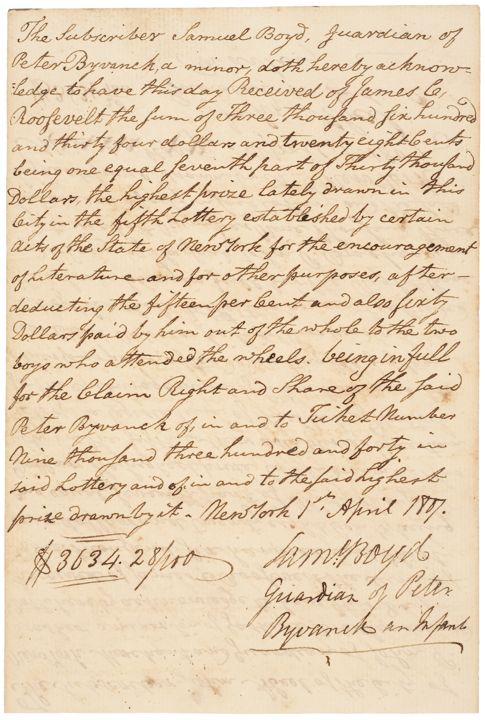 The Subscriber Samuel Boyd, Guardian of
Peter Byvanck, a minor, doth hereby acknow-
-ledge to have this day Received of James C.
Roosevelt the sum of Three thousand six hundred
and thirty four dollars and twenty eight Cents
being one equal seventh part of Thirty thousand
Dollars, the highest prize lately drawn in this
City in the fifth Lottery established by certain
Acts of the State of New York for the encouragement
of Literature and for other purposes, after-
deducting the fifteen per Cent and also sixty
Dollars paid by him out of the whole to the two
boys who attended the wheels. being in full
for the Claim Right and Share of the said
Peter Byvanck of, in and to Ticket Number
Nine thousand three hundred and forty in
said Lottery and of, in and to the said highest
prize drawn by it - New York 1st April 1807.
$3634. 28/100
Saml Boyd
Guardian of Peter
Byvanck an Infant